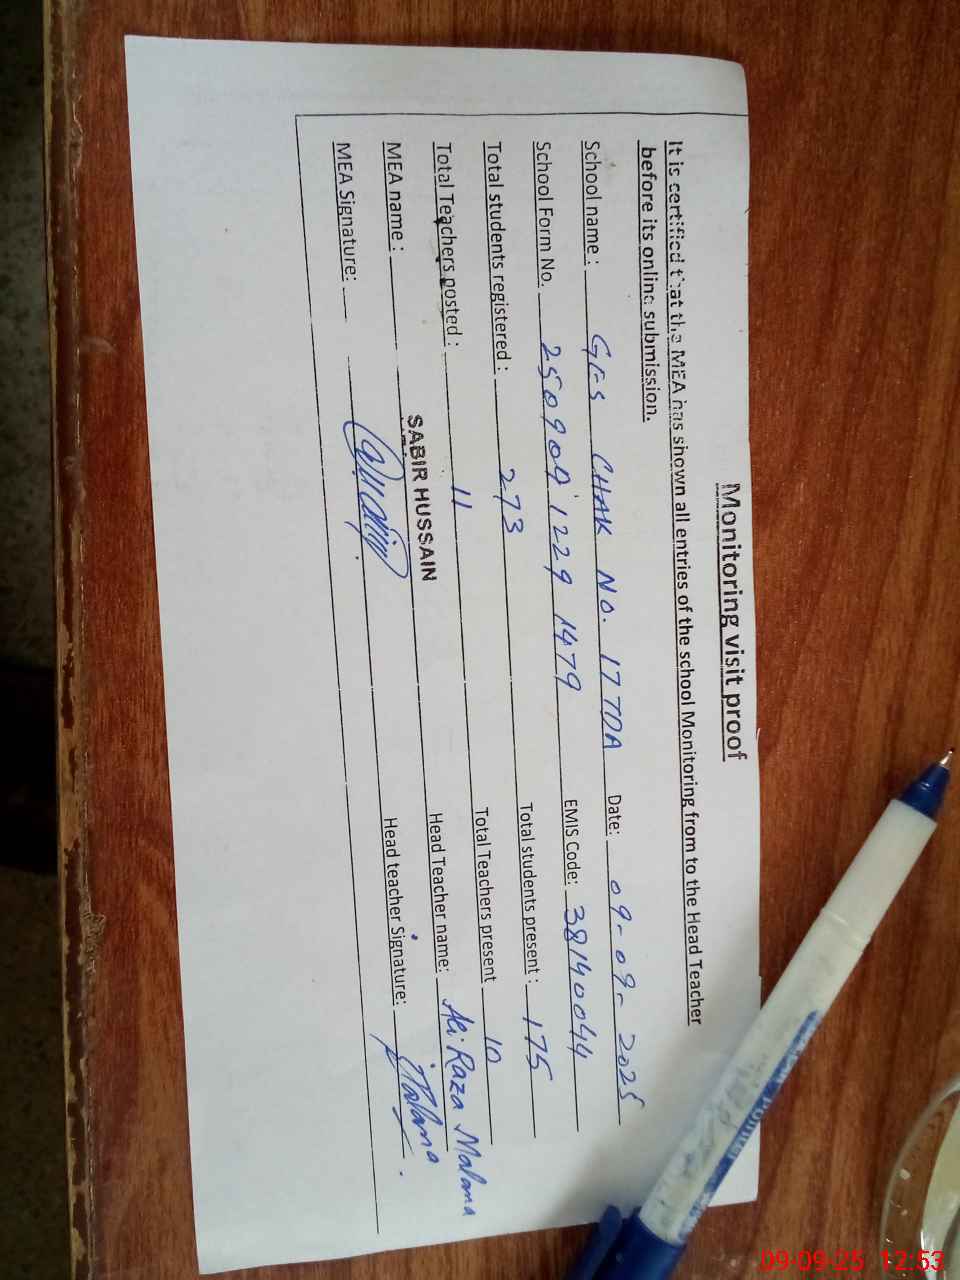 Monitoring visit proof
It is certified that the MEA has shown all entries of the school Monitoring from to the Head Teacher
before its online submission.
School name : GES CHAK NO. 17 TDA Date: 09-09-2025
School Form No. 250909 1229 1479 EMIS Code: 38140044
Total students registered : 273 Total students present : 175
Total Teachers posted : 11 Total Teachers present 10
MEA name : SABIR HUSSAIN Head Teacher name: Ali Raza Malana
MEA Signature: Head teacher Signature: Malana
09-09-25 12:53